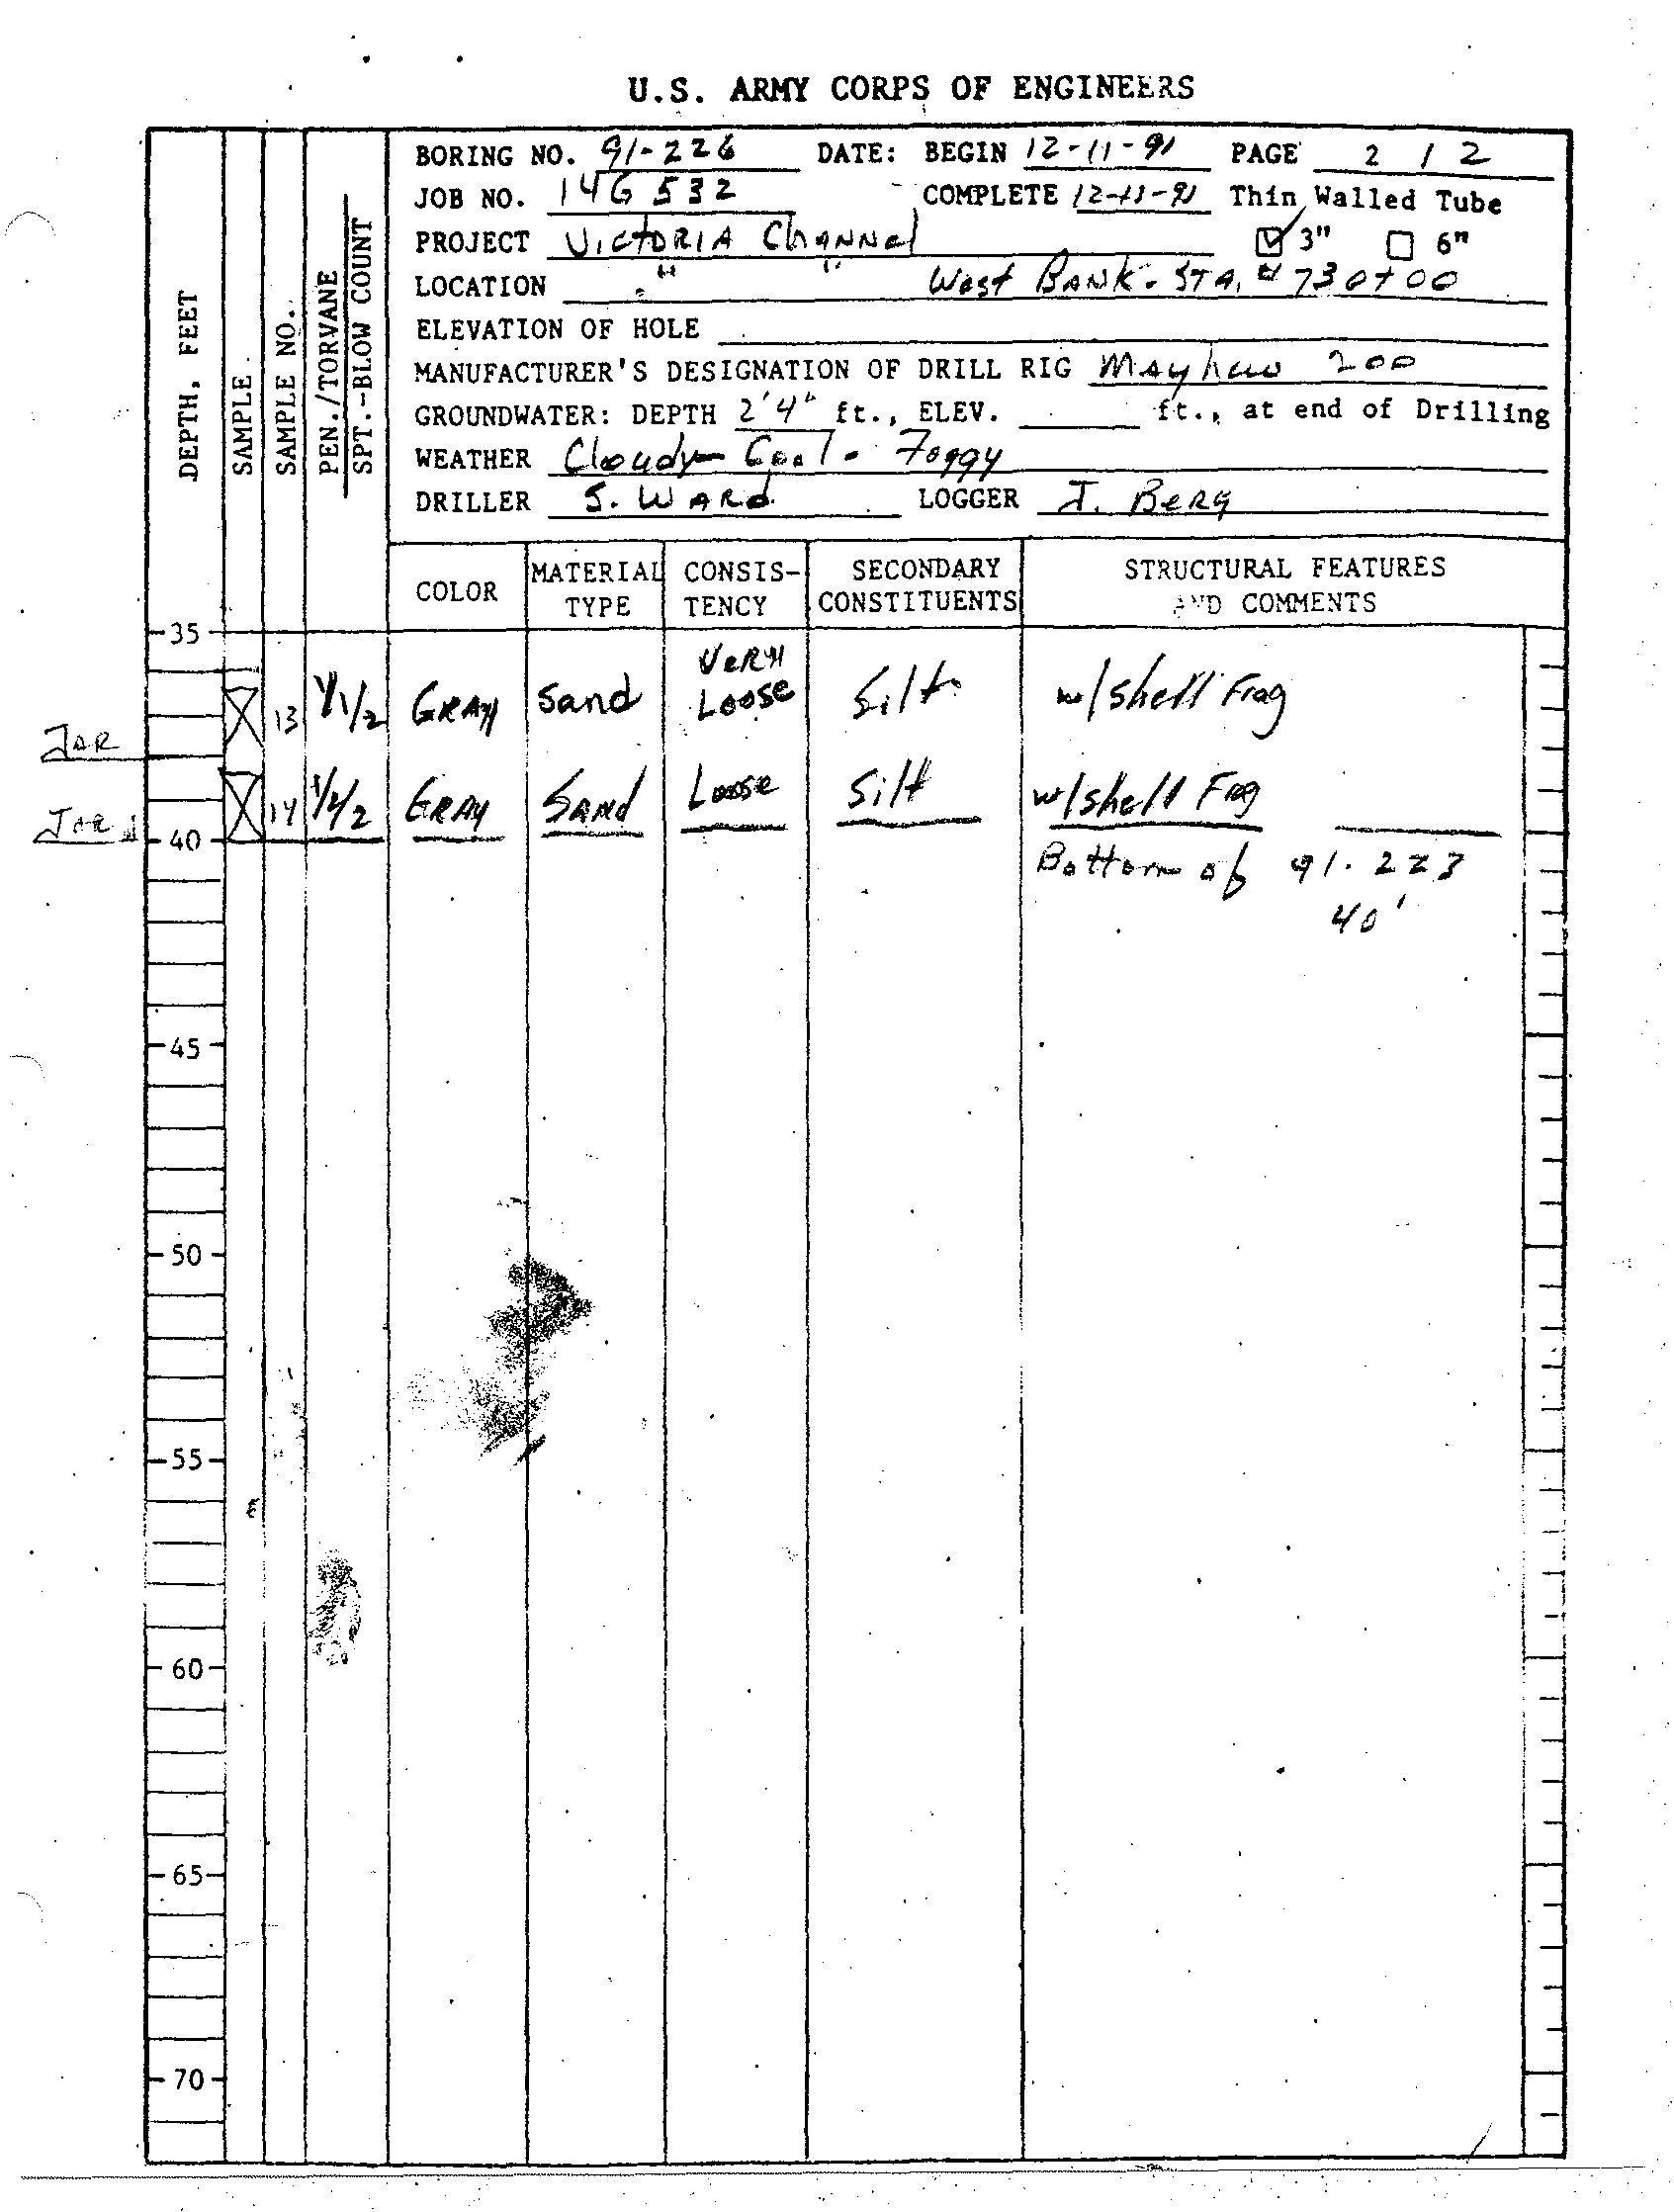 U.S. ARMY CORPS OF ENGINEERS
BORING NO. 91-226 DATE: BEGIN 12-11-91 PAGE 2 / 2
JOB NO. 14G 532 COMPLETE 12-11-91 Thin Walled Tube
PROJECT VICTORIA ChANNel ☑ 3" ☐ 6"
LOCATION " " West BANK - STA, # 730+00
ELEVATION OF HOLE
MANUFACTURER'S DESIGNATION OF DRILL RIG Mayhew 200
GROUNDWATER: DEPTH 2'4" ft., ELEV. ft., at end of Drilling
WEATHER Cloudy - Cool - Foggy
DRILLER S. WARD LOGGER J. BeRg
DEPTH, FEET
SAMPLE
SAMPLE NO.
PEN./TORVANE
SPT.-BLOW COUNT
COLOR MATERIAL TYPE CONSIS-TENCY SECONDARY CONSTITUENTS STRUCTURAL FEATURES AND COMMENTS
35
JAR 13 1/1/2 GRAY Sand VeRy Loose Silt w/shell Frag
JAR 14 1/2/2 GRAY SANd Loose Silt w/shell Frag
40
Bottom of 91-223
40'
45
50
55
60
65
70